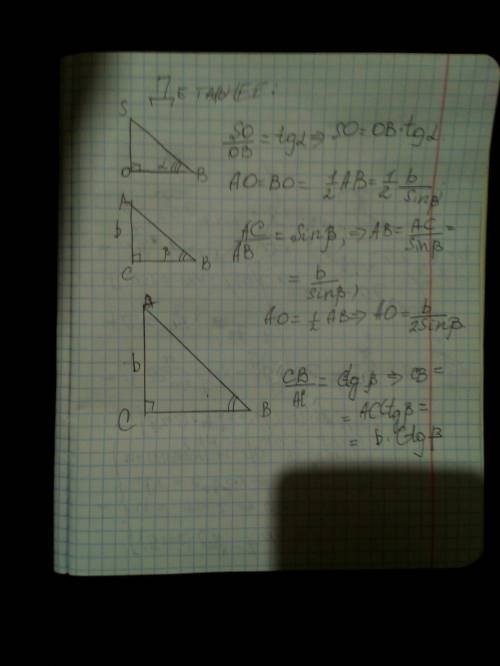 Детальнее:
S
O
α
B
SO/OB = tgα ⇒ SO = OB·tgα
AO = BO = 1/2 AB = 1/2 b/sinβ
A
b
C
β
B
AC/AB = sinβ, ⇒ AB = AC/sinβ =
= b/sinβ,
AO = 1/2 AB ⇒ AO = b/2sinβ
A
b
C
B
CB/AC = ctgβ ⇒ CB =
= ACctgβ =
= b·ctgβ